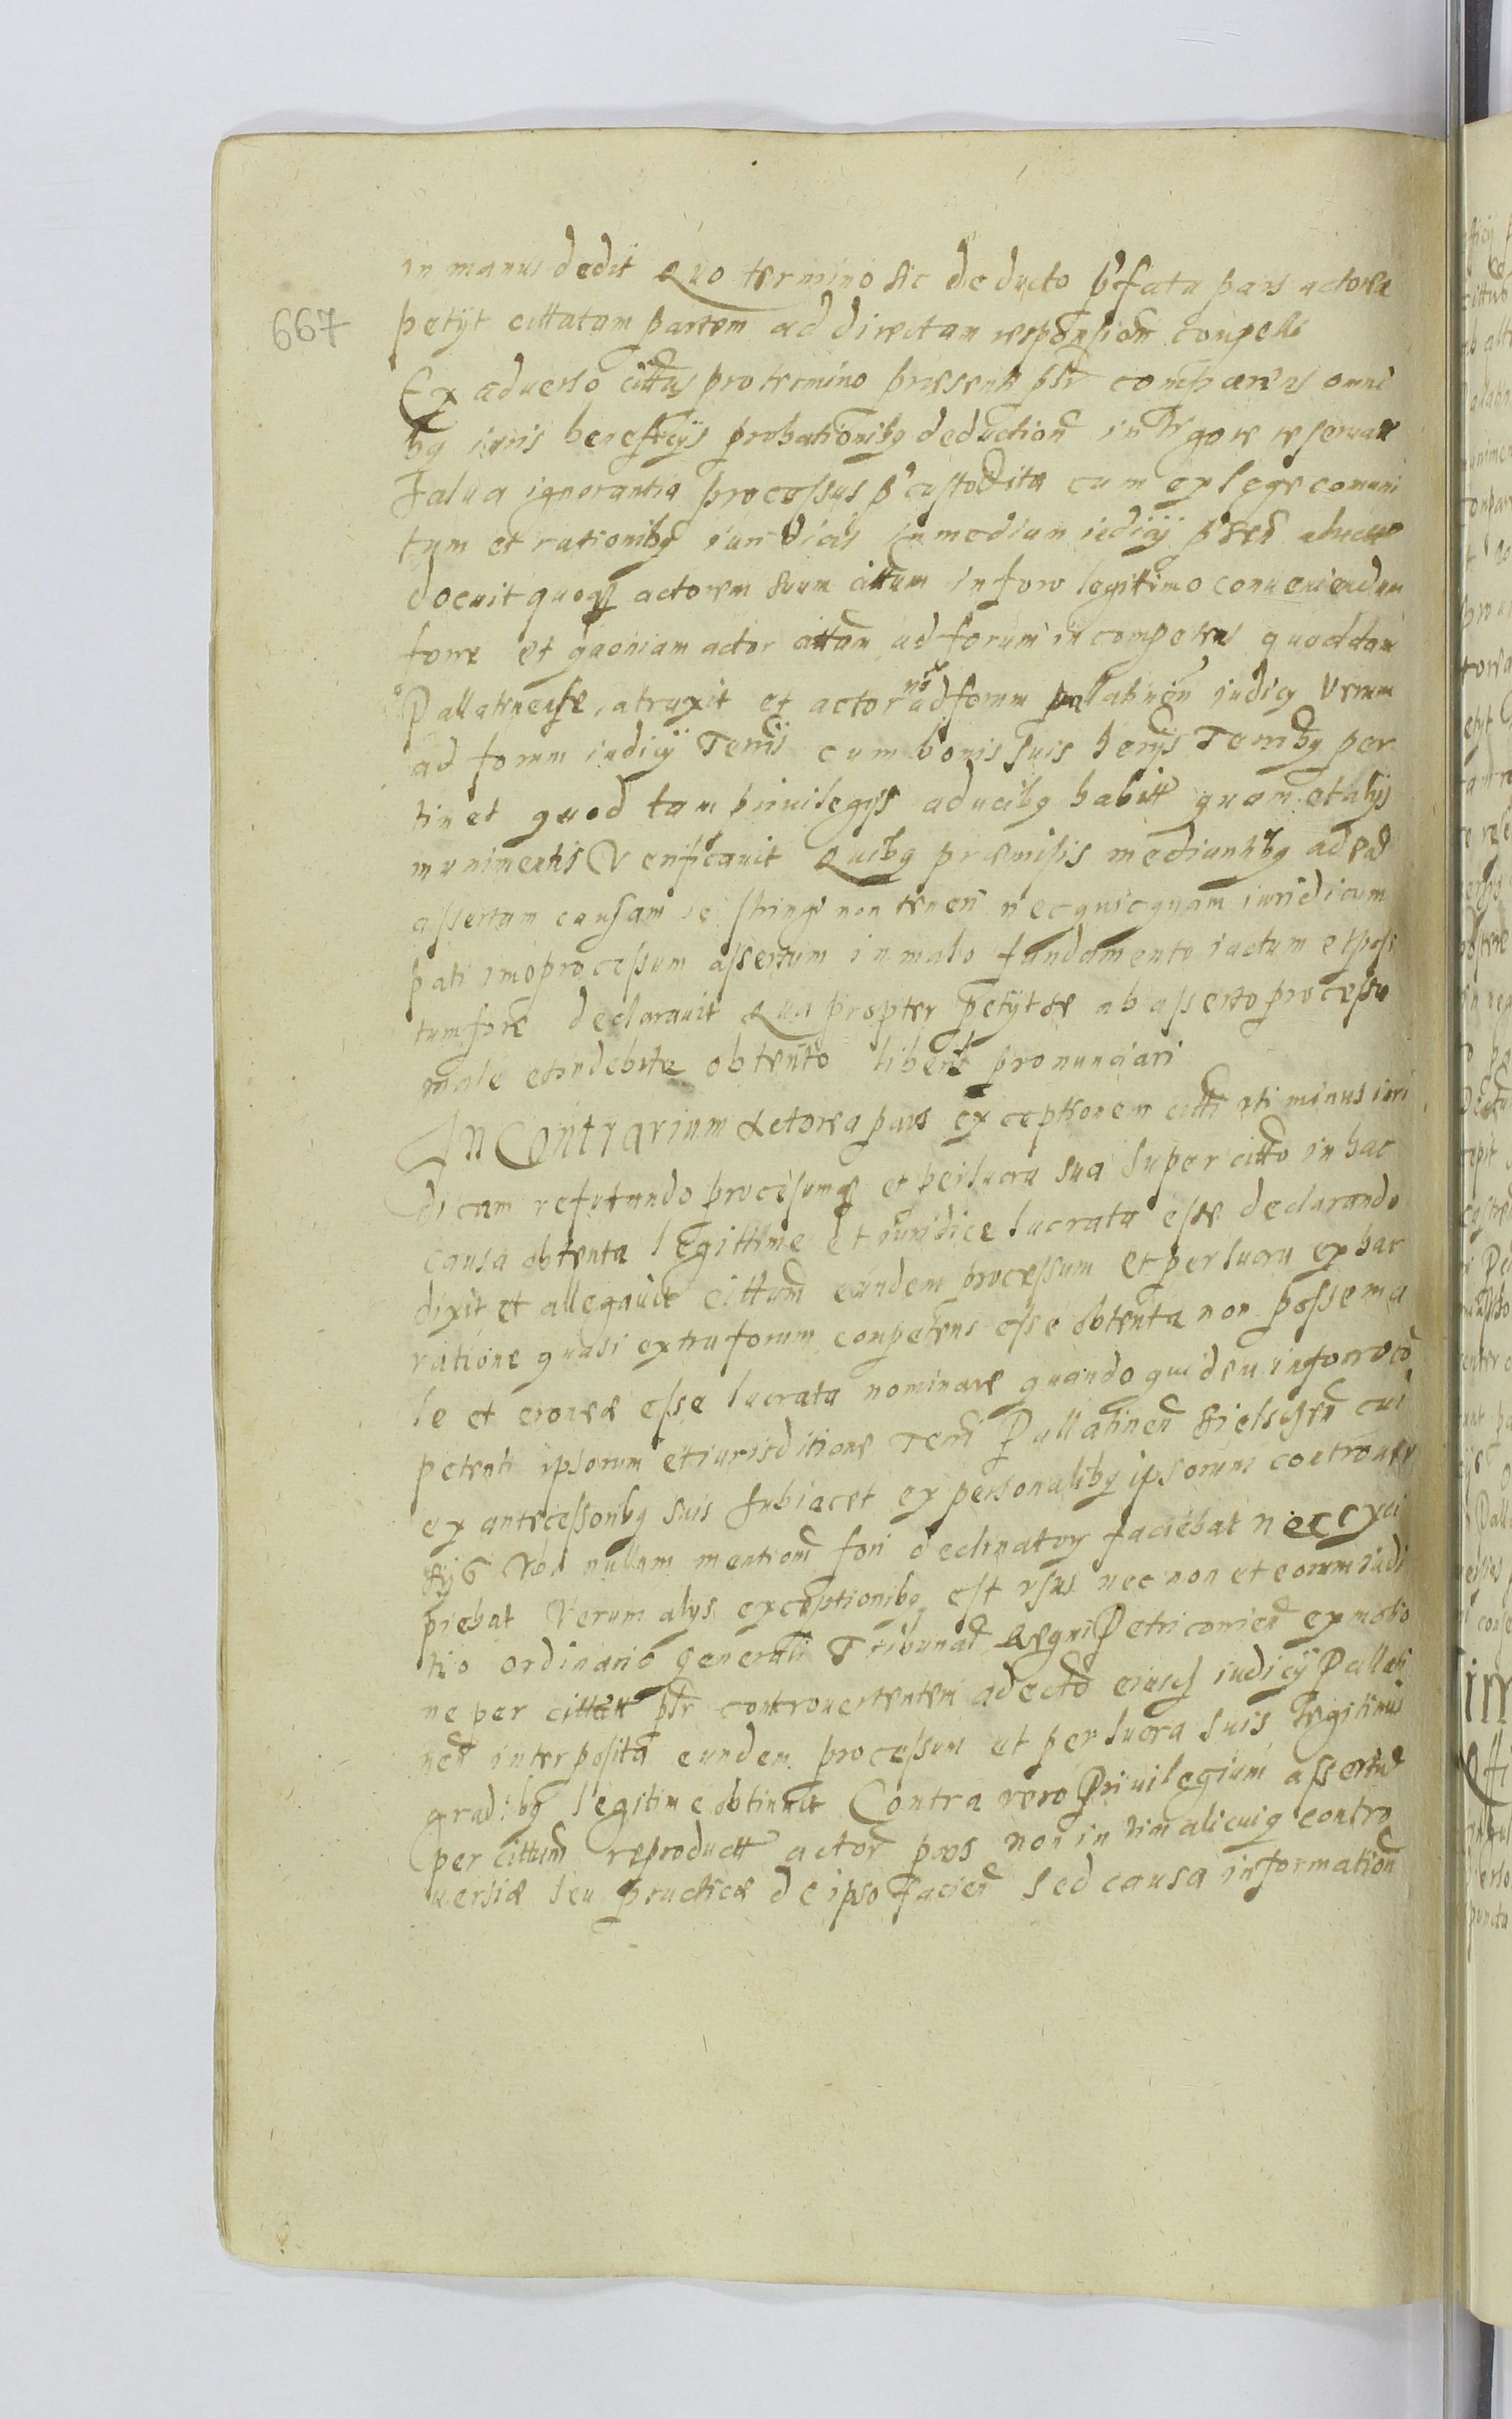 in manus dedit Quo termino sic deducto p'fata pars actorea
667
petÿt cittatam partem ad directam responsion compelli
Ex aduerso cittus pro termino praesenti psr comparens omni
bq iuris beneficÿs probationibq deduction in Rigore reseruat
salua ignorantia processus p'custodita cum ex lege comuni
tum et rationibq iuridicis in medium iudicÿ p'sen
docuit quoqz actorem suum cittum in foro legittimo conueniendum
forre et quoniam actor cittum ad forum incompetens quoddam
Pallatinense atraxit et actor no ad forum pallatinen iudicÿ Verum
ad forum iudicÿ Terris cum bonis suis heris Terribq per
tinet quod tam priuilegÿs aducibq habitt quam et alÿs
munimentis Verificauit Quibq praemisis mediantibq ad ead
assertam causam se stringi non teneri nec quicquam iuridicum
pati imo processum assertum in malo fundamento iactum et posi
tum fore declarauit Qua propter petÿt se ab asserto processu
male et indebite obtento liberu pronunciari
In Contrarium Actorea pars exceptionem citti uti minus iuri
dicam refutando procesumqz et perlucra sua super citto in hac
causa obtenta legittime et iuridice lucrata esse declarando
dixit et allegauit cittum eundem processum et perlucra ex hac
ratione quasi extra forum conpetens esse obtenta non posse ma
le et eronee esse lucrata nominare quando quidem in forro co
petenti ipsorum et iurisditione Terri Pallatinen Bielscen cui
ex antecessoribq suis subiacet ex personalibq ipsorum controuer
sÿs Vbi nullam mention fori declinatorÿ faciebat nec exci
piebat Verum alÿs exceptionibq est vsus nec non et eorum iudi
tio ordinario Generali Tribunal Regni Petricouien ex motio
ne per citt psr controuertentem a decto eiusqz iudicÿ Pallati
nen interposita eundem processum et perlucra suis legitimis
gradibq legitime obtinuit Contra vero Priuilegium assertu
per cittum reproductt actor pars non in vim alicuiq contro
uersiae seu practicae de ipso facien sed causa information